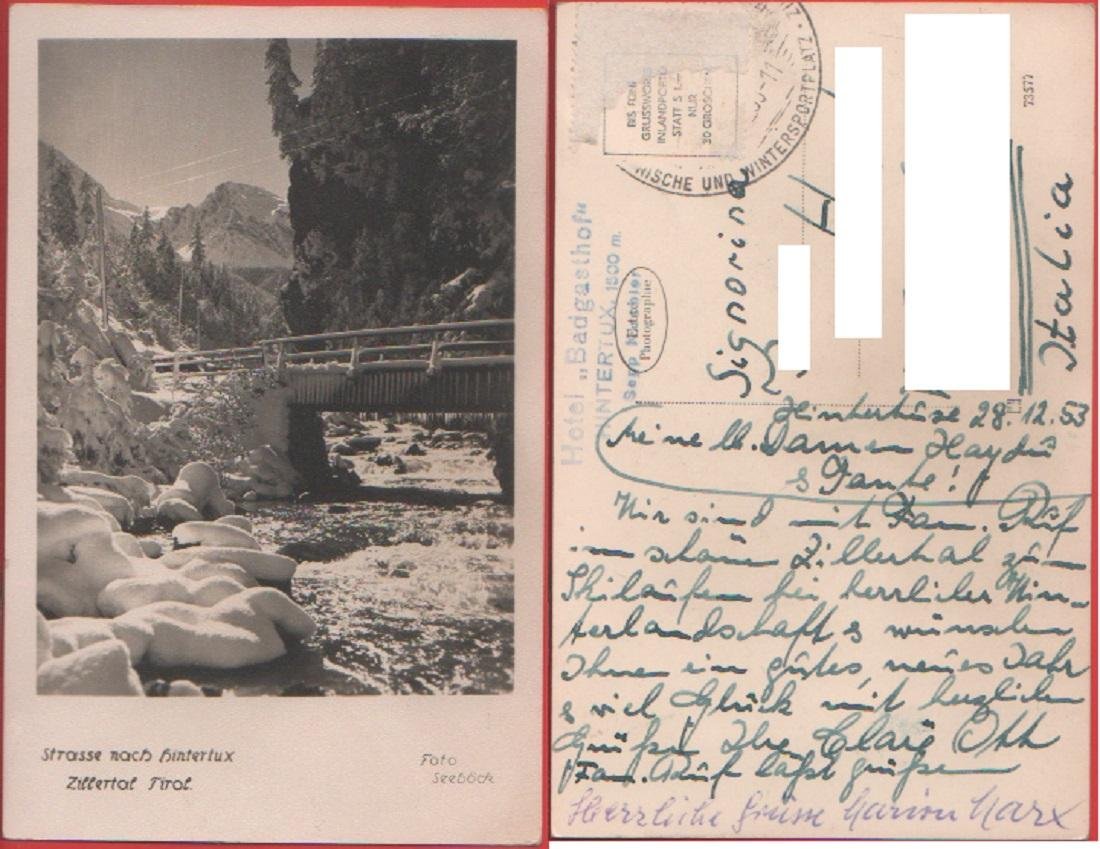 Strasse nach Hintertux
Zillertal Tirol.
Foto
Seeböck
BIS FÜNF
GRUSSWORTE
INLANDPORTO
STATT S 1.—
NUR
30 GROSCHEN
NISCHE UND WINTERSPORTPLATZ
73577
Hotel „Badgasthof“
HINTERTUX, 1500 m.
Sepp
Photographie
Signorina
H
Italia
28.12.53
Meine lb. Damen Haydn
& Tante!
Wir sind mit Fam. Ruf
im schönen Zillertal zum
Skilaufen bei herrlicher Win-
terlandschaft & wünschen
Ihnen ein gutes neues Jahr
& viel Glück mit herzlichen
Grüßen Ihre Ott
Fam. Ruf läßt grüßen
Herrliche Grüsse Marion Marx